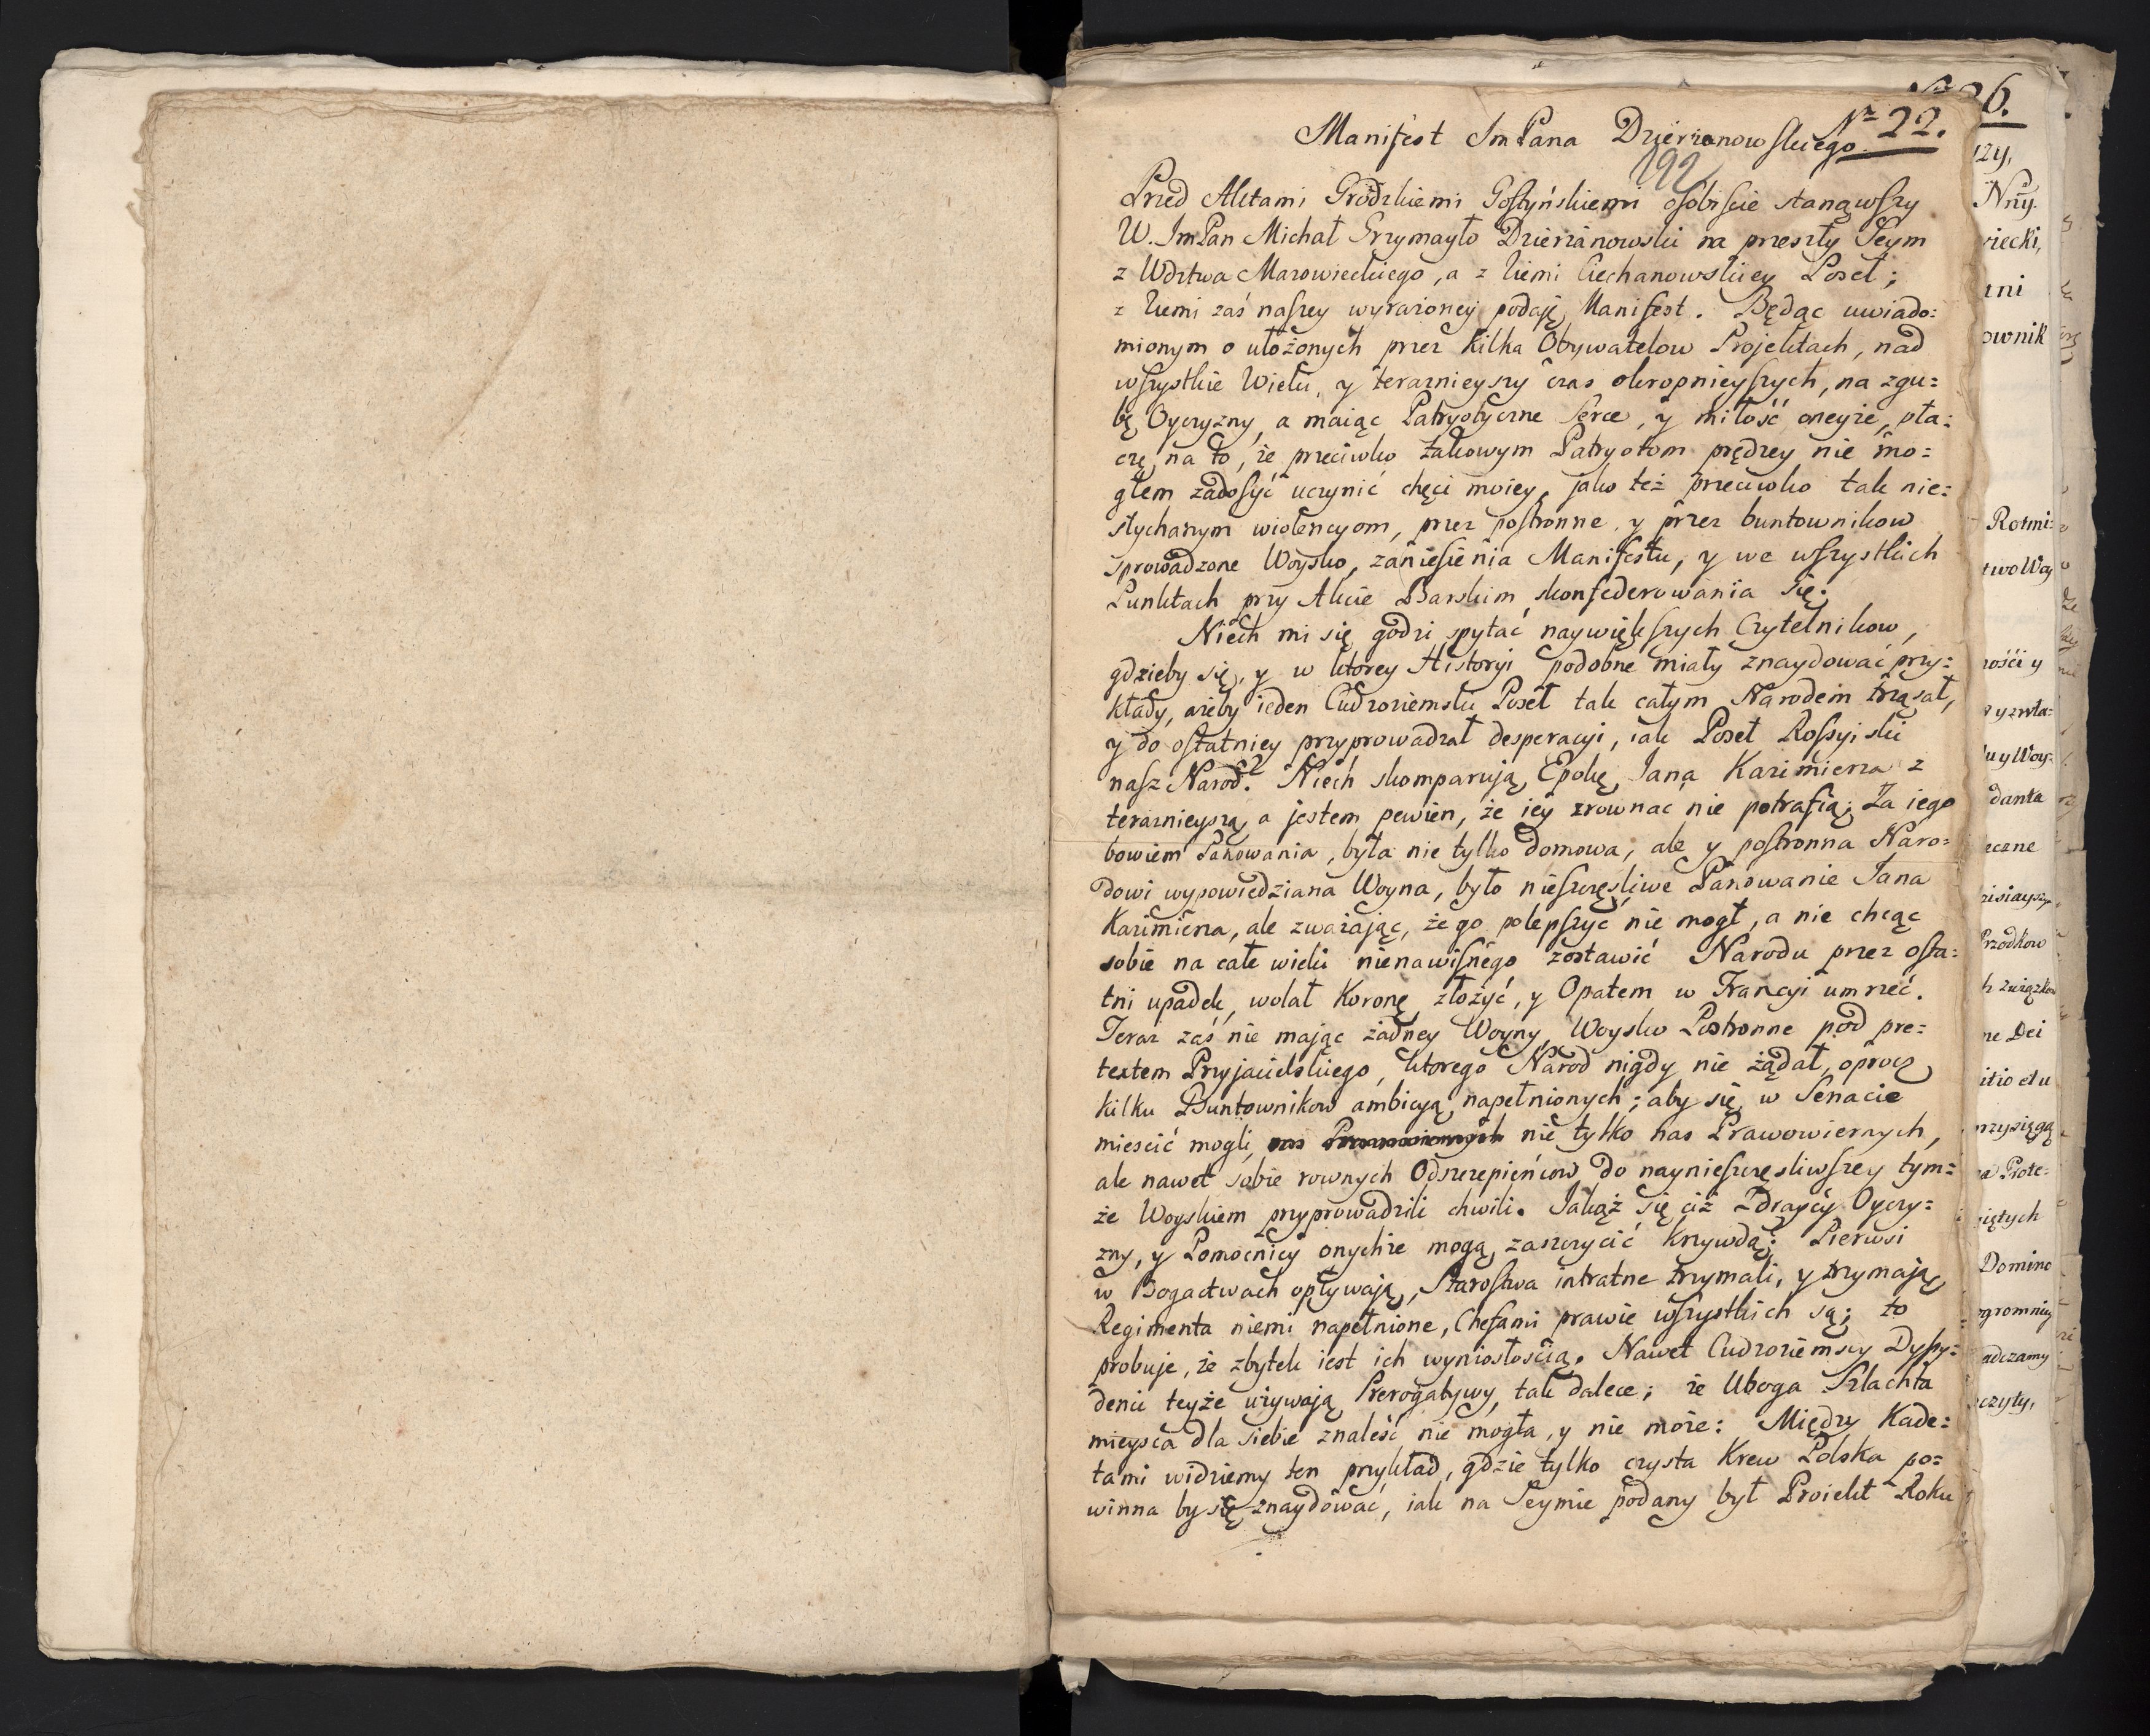 Nr 22.
Manifest ImPana Dzierzanowskiego.
192
Przed Aktami Grodzkiemi Gostyńskiemi osobiscie stanąwszy
W. ImPan Michał Grzymayło Dzierżanowski na przeszły Seym
z Wdztwa Mazowieckiego, a z Ziemi Ciechanowskiey Poseł;
z Ziemi zaś naszey wyrażoney podaję Manifest. Będąc uwiado=
mionym o ułożonych przez kilka Obywatelow Projektach, nad
wszystkie Wieki, y teraznieyszy czas okropnieyszych, na zgu=
bę Oyczyzny, a maiąc Patryotyczne Serce, y miłość oneyże, pła=
czę na to, że przeciwko takowym Patryotom prędzey nie mo=
głem zadosyć uczynić chęci moiey, jako też przeciwko tak nie=
słychanym wiolencyom, przez postronne y przez buntownikow
sprowadzone Woysko, zaniesienia Manifestu, y we wszystkich
Punktach przy Akcie Barskim skonfederowania się.
Niech mi się godzi spytać naywiększych Czytelnikow,
gdzieby się, y w ktorey Historyi podobne miały znaydować przy=
kłady, ażeby ieden Cudzoziemski Poseł tak całym Narodem trząsał,
y do ostatniey przyprowadzał desperacyi, iak Poseł Rossyiski
nasz Narod? Niech skomparują Epokę Jana Kazimierza z
teraznieyszą, a jestem pewien, że iey zrownac nie potrafią; Za iego
bowiem Panowania, była nie tylko domowa, ale y postronna Naro=
dowi wypowiedziana Woyna, było nieszczęśliwe Panowanie Jana
Kazimierza, ale zważając, że go polepszyc nie mogł, a nie chcąc
sobie na całe wieki nienawisnego zostawić Narodu przez osta=
tni upadek, wolał Koronę złożyć, y Opatem w Francyi umrzeć.
Teraz zaś nie mając żadney Woyny, Woysko Postronne pod pre=
textem Przyjacielskiego, ktorego Narod nigdy nie żądał, oprocz
kilku Buntownikow ambicyą napełnionych; aby się w Senacie
miescić mogli, nie tylko nas Prawowiernych,
ale nawet sobie rownych Odszczepieńcow do naynieszczęśliwszey tym=
że Woyskiem przyprowadzili chwili. Jakąż się ciż Zdraycy Oyczy=
zny, y Pomocnicy onychże mogą zaszczycić krzywdą; Pierwsi
w Bogactwach opływają, Starostwa intratne trzymali, y trzymają,
Regimenta niemi napełnione, Chefami prawie wszystkich są; to
probuje, że zbytek iest ich wyniosłością. Nawet Cudzoziemscy Dyssy=
denci teyże używają Prerogatywy, tak dalece; że Uboga Szlachta
mieysca dla siebie znaleść nie mogła, y nie może: Między Kade=
tami widziemy ten przykład, gdzie tylko czysta Krew Polska po=
winna by się znaydować, iak na Seymie podany był Proiekt Roku
6.
Rotmi=
danta
Przodkow
ne Dei
przysięgą
Domino